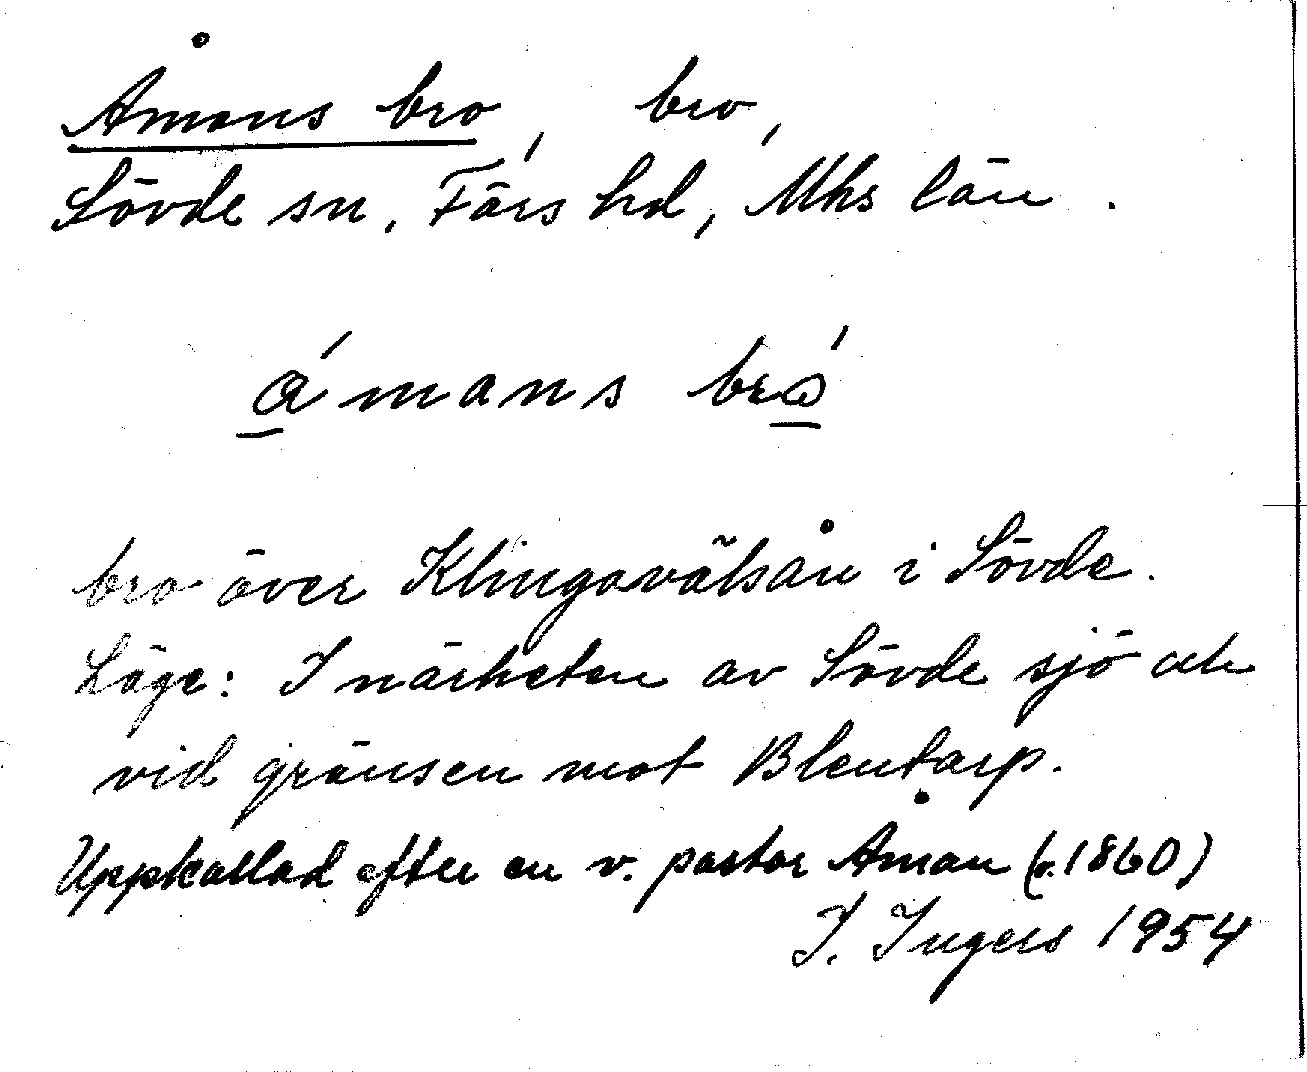 Åmans bro, bro,
Sövde sn, Färs hd, Mhs län.
ámans bró
bro över Klingavälsån i Sövde.
Läge: I närheten av Sövde sjö och
vid gränsen mot Blentarp.
Uppkallad efter en v. pastor Åman (c. 1860)
I. Ingers 1954